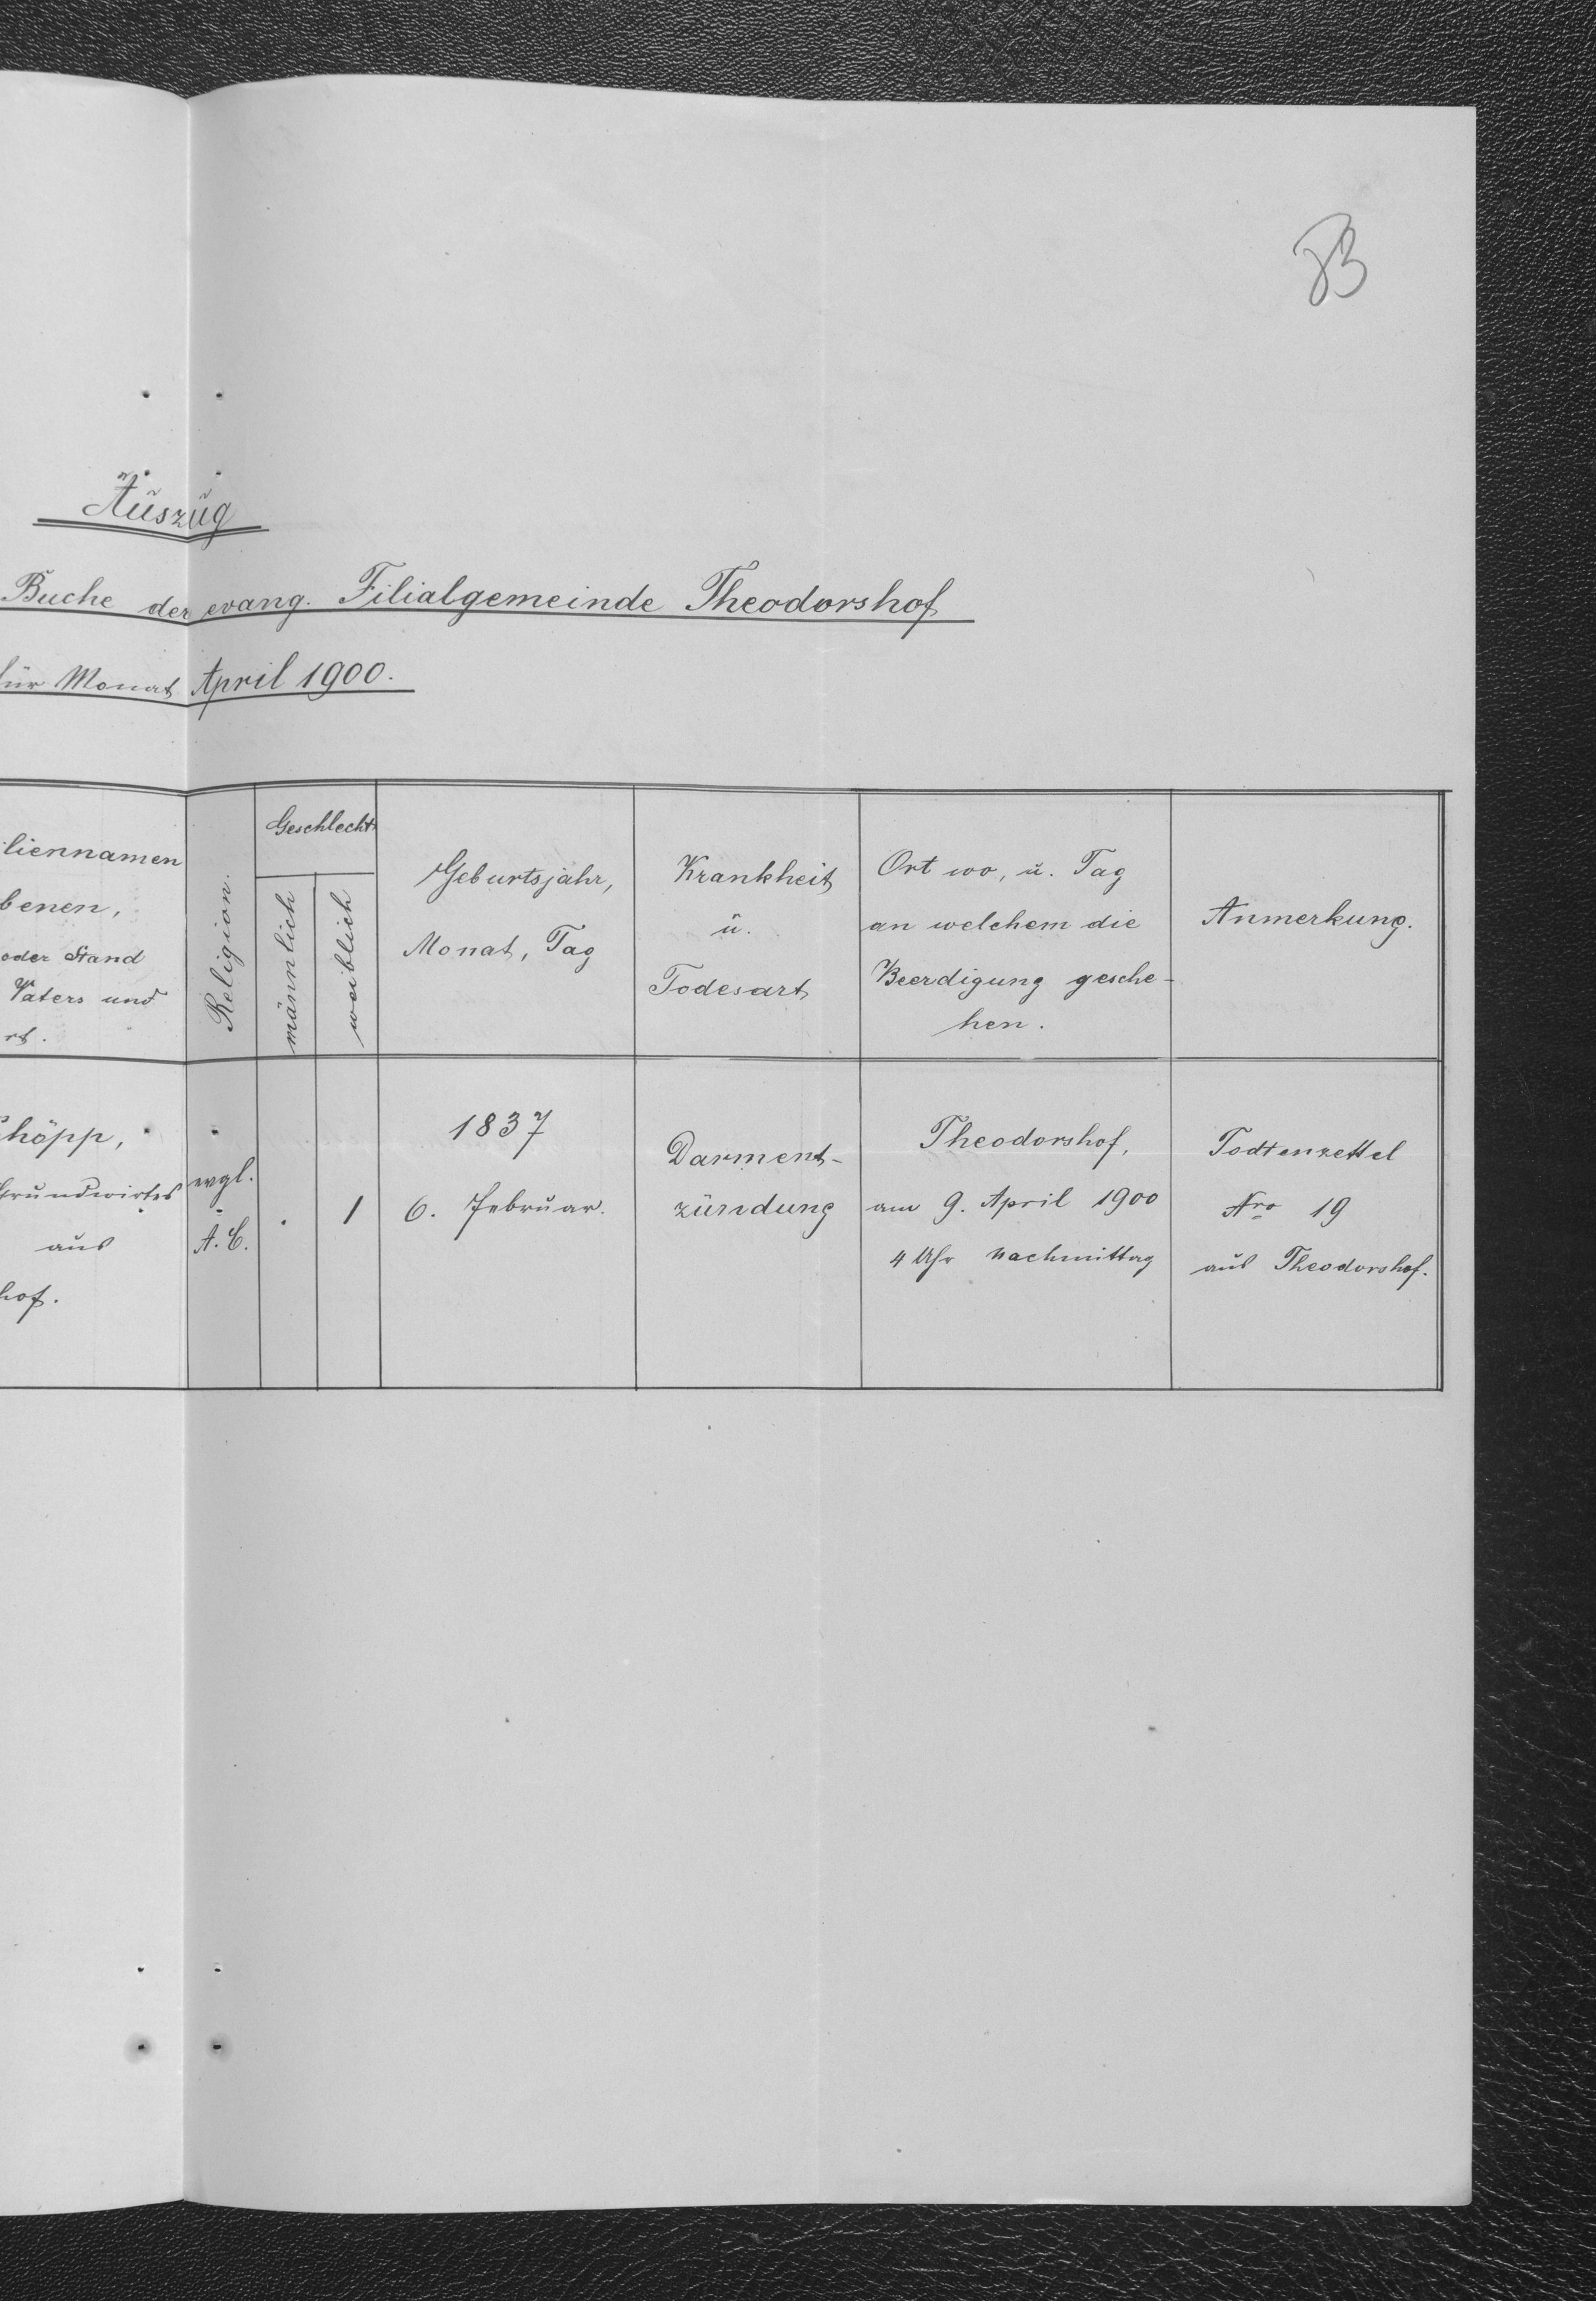 83
Auszug
Buche der evang. Filialgemeinde Theodorshof
für Monat April 1900.
liennamen
benen,
oder Stand
Vaters und
rt.
Religion.
Geschlecht
männlich
weiblich
Geburtsjahr,
Monat, Tag
Krankheit
u.
Todesart
Ort wo, u. Tag
an welchem die
Beerdigung gesche-
hen.
Anmerkung.
höpp,
Grundwirtes
aus
hof.
evgl.
A.C.
1
1837
6. Februar.
Darment-
zündung
Theodorshof,
am 9. April 1900
4 Uhr Nachmittag
Todtenzettel
Nro 19
aus Theodorshof.